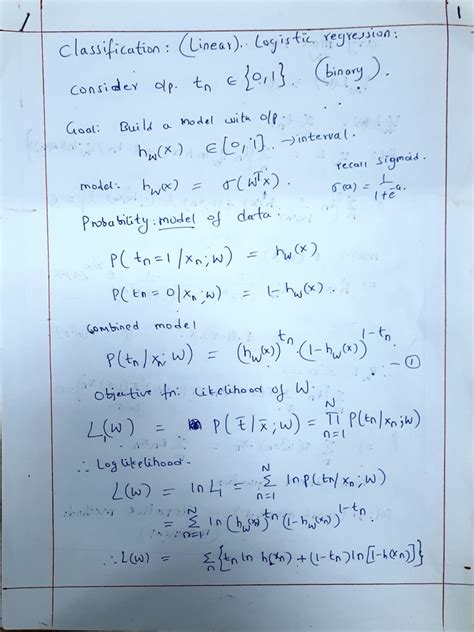 1
1
Classification: (Linear). Logistic regression:
Consider o/p. tₙ ∈ {0,1}. (binary).
Goal: Build a model with o/p.
h_w(x) ∈ [0,1]. → interval.
recall sigmoid.
model: h_w(x) = σ(wᵀx). σ(a) = 1/(1+e⁻ᵃ).
Probability model of data.
P(tₙ=1/xₙ;w) = h_w(x)
P(tₙ=0/xₙ;w) = 1-h_w(x).
Combined model
P(tₙ/xₙ;w) = (h_w(x))^tₙ.(1-h_w(x))^(1-tₙ) —①
Objective fn: Likelihood of W.
L₁(w) = P(t̄/x̄;w) = ∏_{n=1}^{N} P(tₙ/xₙ;w)
∴ Log likelihood.
L(w) = ln L₁ = Σ_{n=1}^{N} ln P(tₙ/xₙ;w)
= Σ_{n=1}^{N} ln (h_w(xₙ))^tₙ (1-h_w(xₙ))^(1-tₙ)
∴ L(w) = Σ_n {tₙ ln h(xₙ) + (1-tₙ) ln [1-h(xₙ)]}